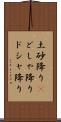 土砂降り
どしゃ降り
ドシャ降り